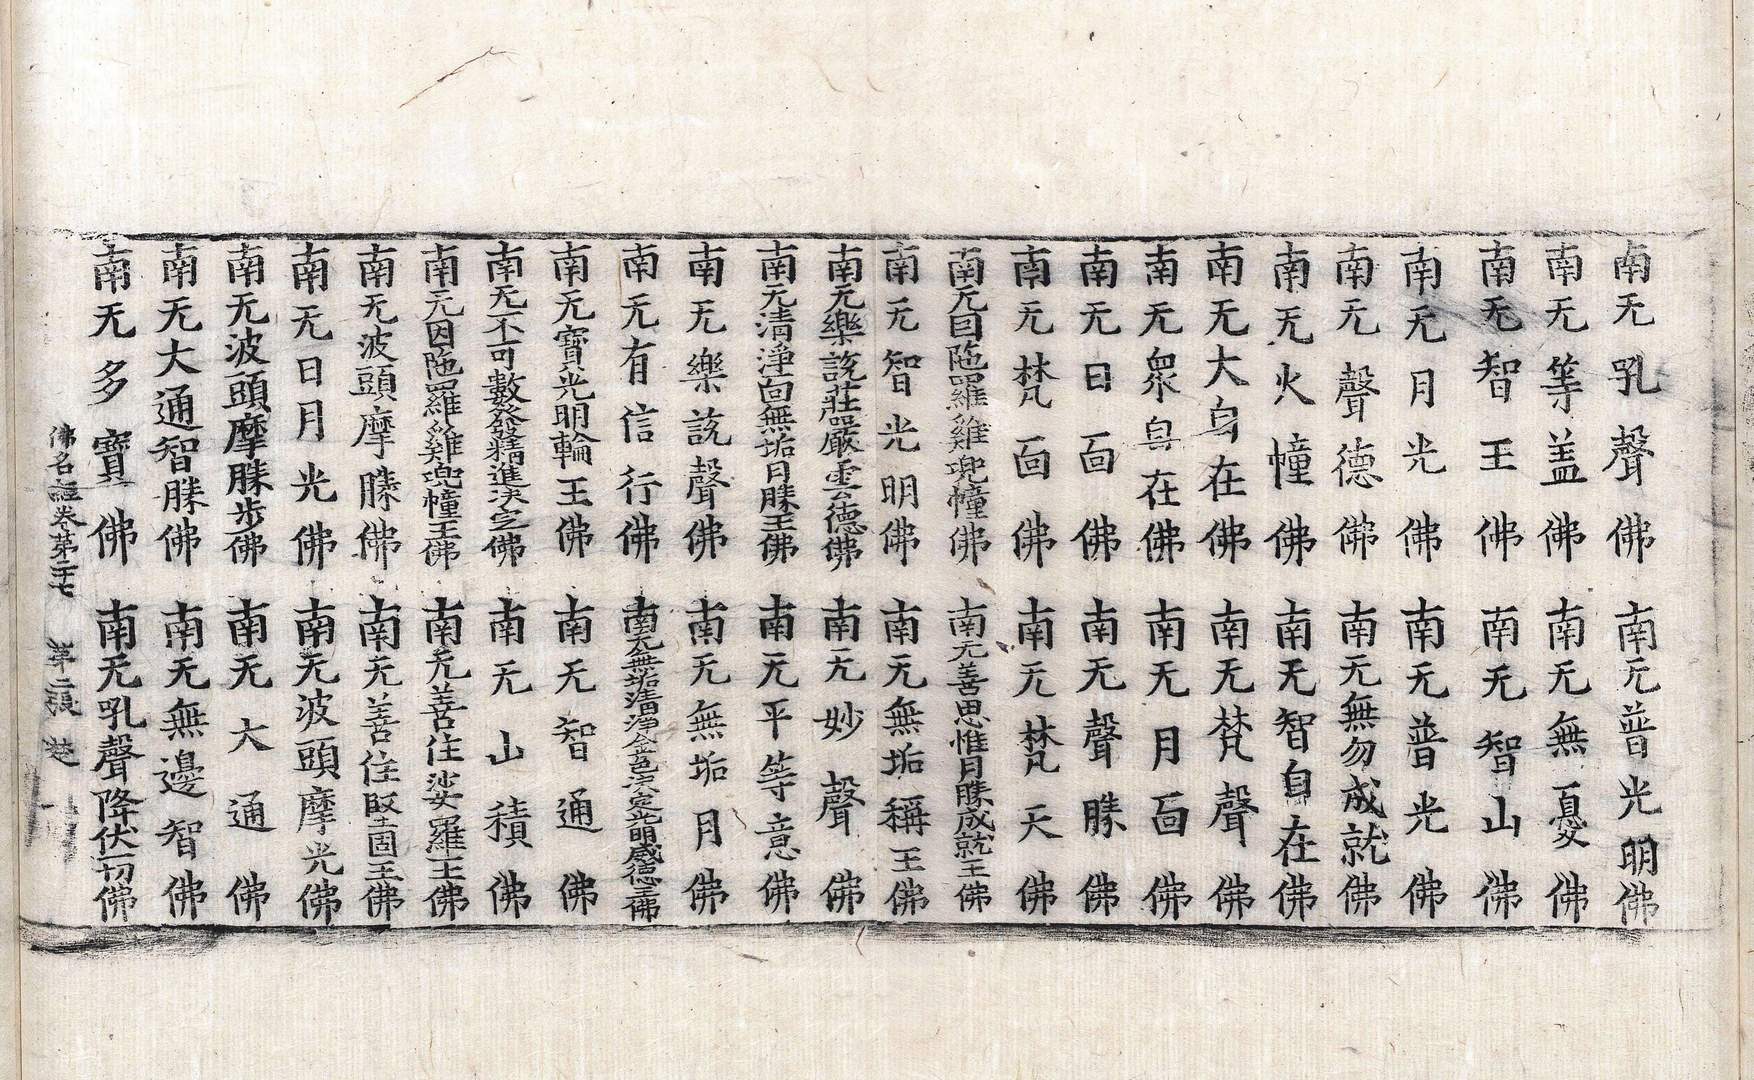 南无吼聲佛 南无普光明佛
南无等盖佛 南无無憂佛
南无智王佛 南无智山佛
南无月光佛 南无普光佛
南无聲德佛 南无無勿成就佛
南无火幢佛 南无智自在佛
南无大自在佛 南无梵聲佛
南无衆自在佛 南无月面佛
南无日面佛 南无聲勝佛
南无梵面佛 南无梵天佛
南无因陁羅雞兜幢佛 南无善思惟月勝成就王佛
南无智光明佛 南无無垢稱王佛
南无樂說莊嚴雲德佛 南无妙聲佛
南无清淨面無垢月勝王佛 南无平等意佛
南无樂說聲佛 南无無垢月佛
南无有信行佛 南无無垢清淨金色決定光明威德王佛
南无寶光明輪王佛 南无智通佛
南无不可數發精進決定佛 南无山積佛
南无因陁羅雞兜幢王佛 南无善住娑羅王佛
南无波頭摩勝佛 南无善住堅固王佛
南无日月光佛 南无波頭摩光佛
南无波頭摩勝步佛 南无大通佛
南无大通智勝佛 南无無邊智佛
南无多寶佛 南无吼聲降伏一切佛
佛名經卷第二十七 第二張 楚